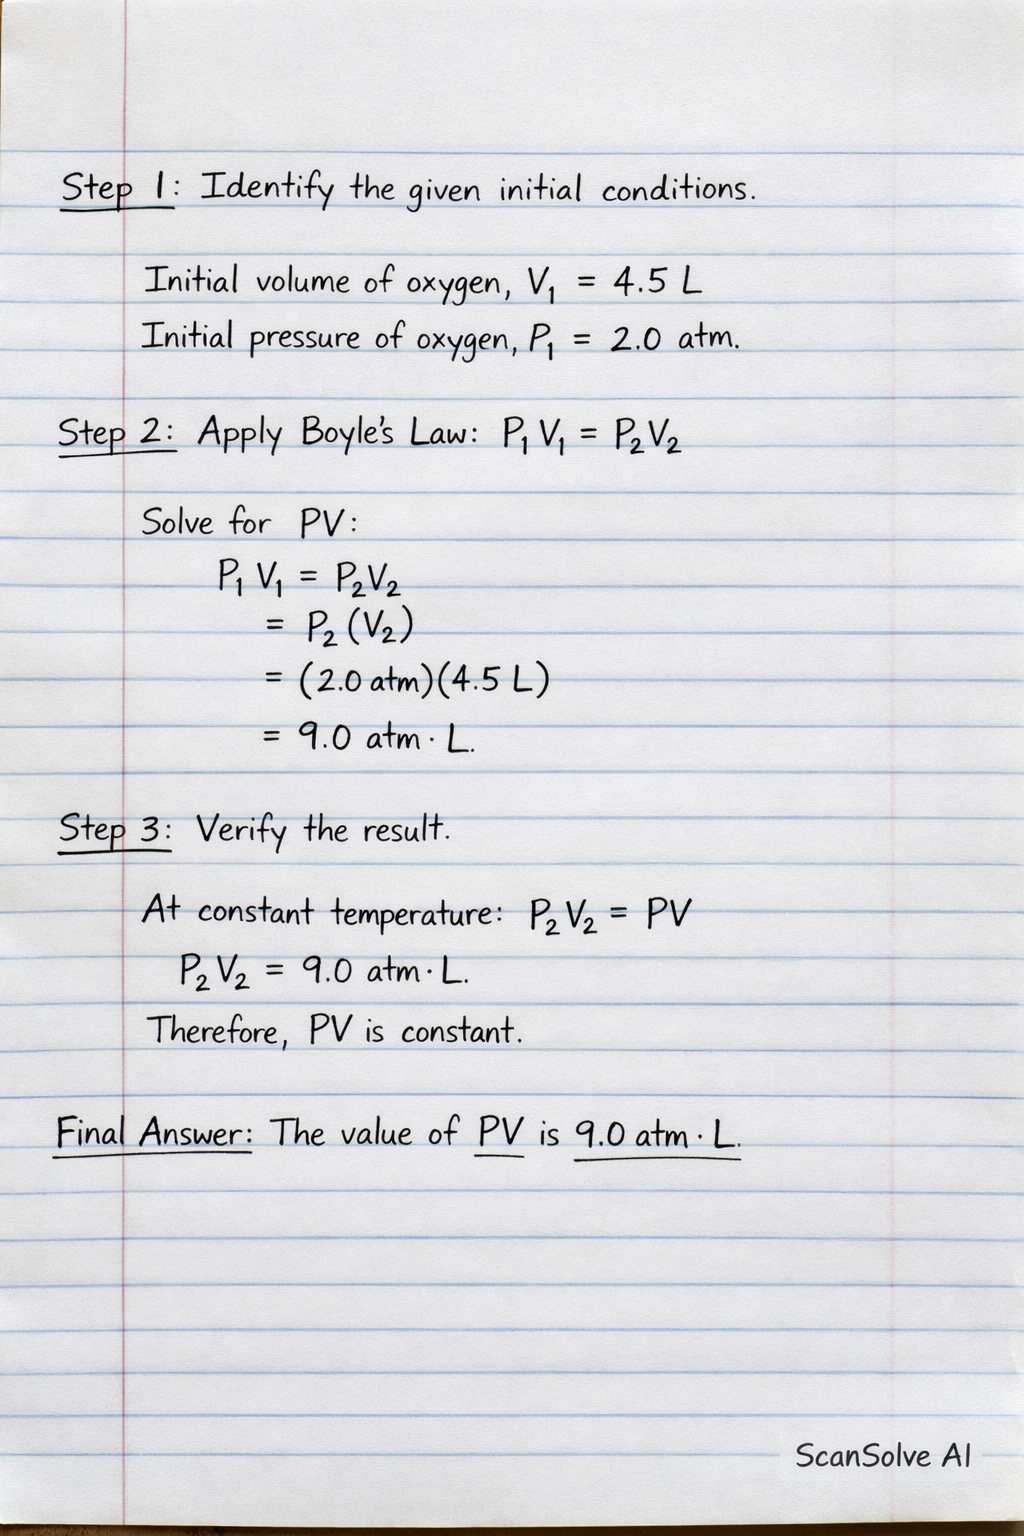 Step 1: Identify the given initial conditions.
Initial volume of oxygen, V₁ = 4.5 L
Initial pressure of oxygen, P₁ = 2.0 atm.
Step 2: Apply Boyle's Law: P₁ V₁ = P₂V₂
Solve for PV:
P₁ V₁ = P₂V₂
= P₂ (V₂)
= (2.0 atm)(4.5 L)
= 9.0 atm · L.
Step 3: Verify the result.
At constant temperature: P₂ V₂ = PV
P₂ V₂ = 9.0 atm · L.
Therefore, PV is constant.
Final Answer: The value of PV is 9.0 atm · L.
ScanSolve AI